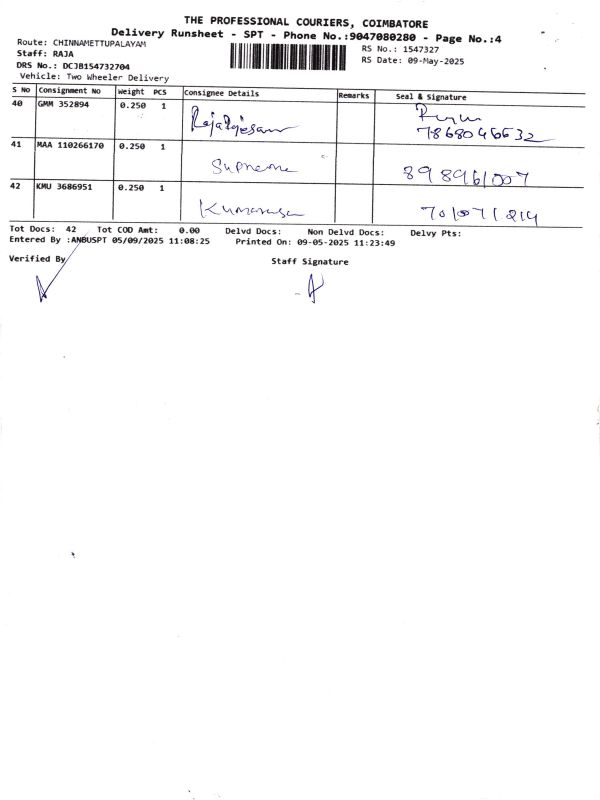 THE PROFESSIONAL COURIERS, COIMBATORE
Delivery Runsheet - SPT - Phone No.:9047080280 - Page No.:4
Route: CHINNAMETTUPALAYAM
RS No.: 1547327
Staff: RAJA
RS Date: 09-May-2025
DRS No.: DCJB154732704
Vehicle: Two Wheeler Delivery
S No Consignment No Weight PCS Consignee Details Remarks Seal & Signature
40 GMM 352894 0.250 1
41 MAA 110266170 0.250 1 Supreme
42 KMU 3686951 0.250 1
Tot Docs: 42 Tot COD Amt: 0.00 Delvd Docs: Non Delvd Docs: Delvy Pts:
Entered By :ANBUSPT 05/09/2025 11:08:25 Printed On: 09-05-2025 11:23:49
Verified By Staff Signature